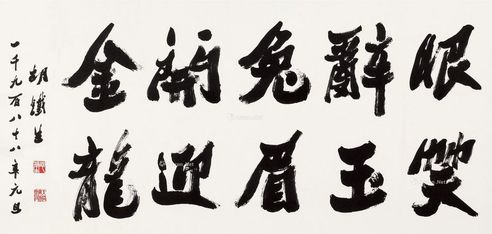 眼笑
辭玉
兔眉
開迎
金龍
胡鐵生
一千九百八十八年元旦